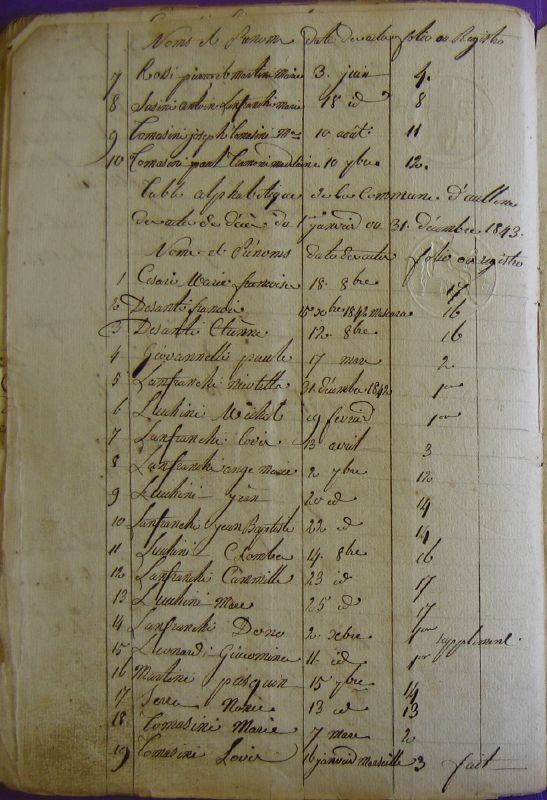 Noms et Prénoms date des actes folio du Registre
7 Rossi pierre et martini Marie 3. juin 4.
8 Susini antoine Lanfranchi marie 18 id 8
9 Tomasini joseph Tomasini Mie 10 août 11
10 Tomasini paul madelaine 10 7bre 12.
Table alphabétique de la Commune d'aullene
des actes de décès du 1er janvier au 31 décembre 1843.
Noms et Prénoms date des actes folio du registre
1 Cesari Marie francoise 18. 8bre 17
2 Desanti francois 15 xbre 1842 Mascara 16
3 Desanti Etienne 12 8bre 16
4 Giovannelli paule 17 mars 2
5 Lanfranchi nicoletta 31 décembre 1842 1er
6 Luchini 19 fevrier 1er
7 Lanfranchi Louis 13 avril 3
8 Lanfranchi ange Marie 2 7bre 12
9 Luchini jean 20 id 14
10 Lanfranchi jean Baptiste 22 id 14
11 Luchini Colomba 14. 8bre 16
12 Lanfranchi Cammille 23 id 17
13 Luchini Marc 25 id 17
14 Lanfranchi Dono 2. xbre 1er supplement.
15 Leonardi Giacomina 11. id 1er
16 Martini pasquin 15 7bre 14
17 Serra Marie 13 id 13
18 Tomasini Marie 7 mars 2
19 Tomasini Louis 16 janvier Marseille 3 fait